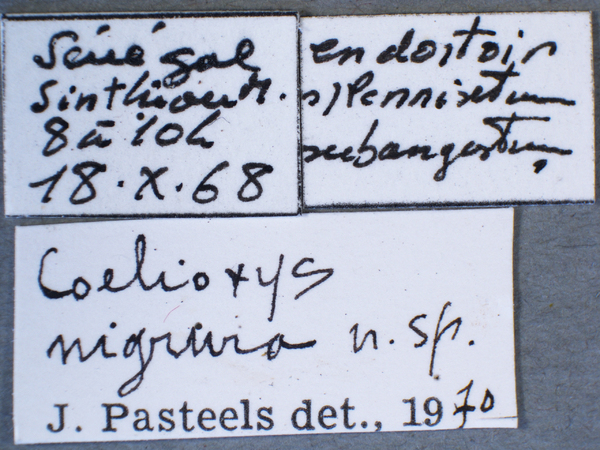 Sénégal
Sinthiou M.
8 à 10h
18.X.68
en dortoir
s/Pennisetum
subangustum
Coelioxys
nigrura n. sp.
J. Pasteels det., 1970